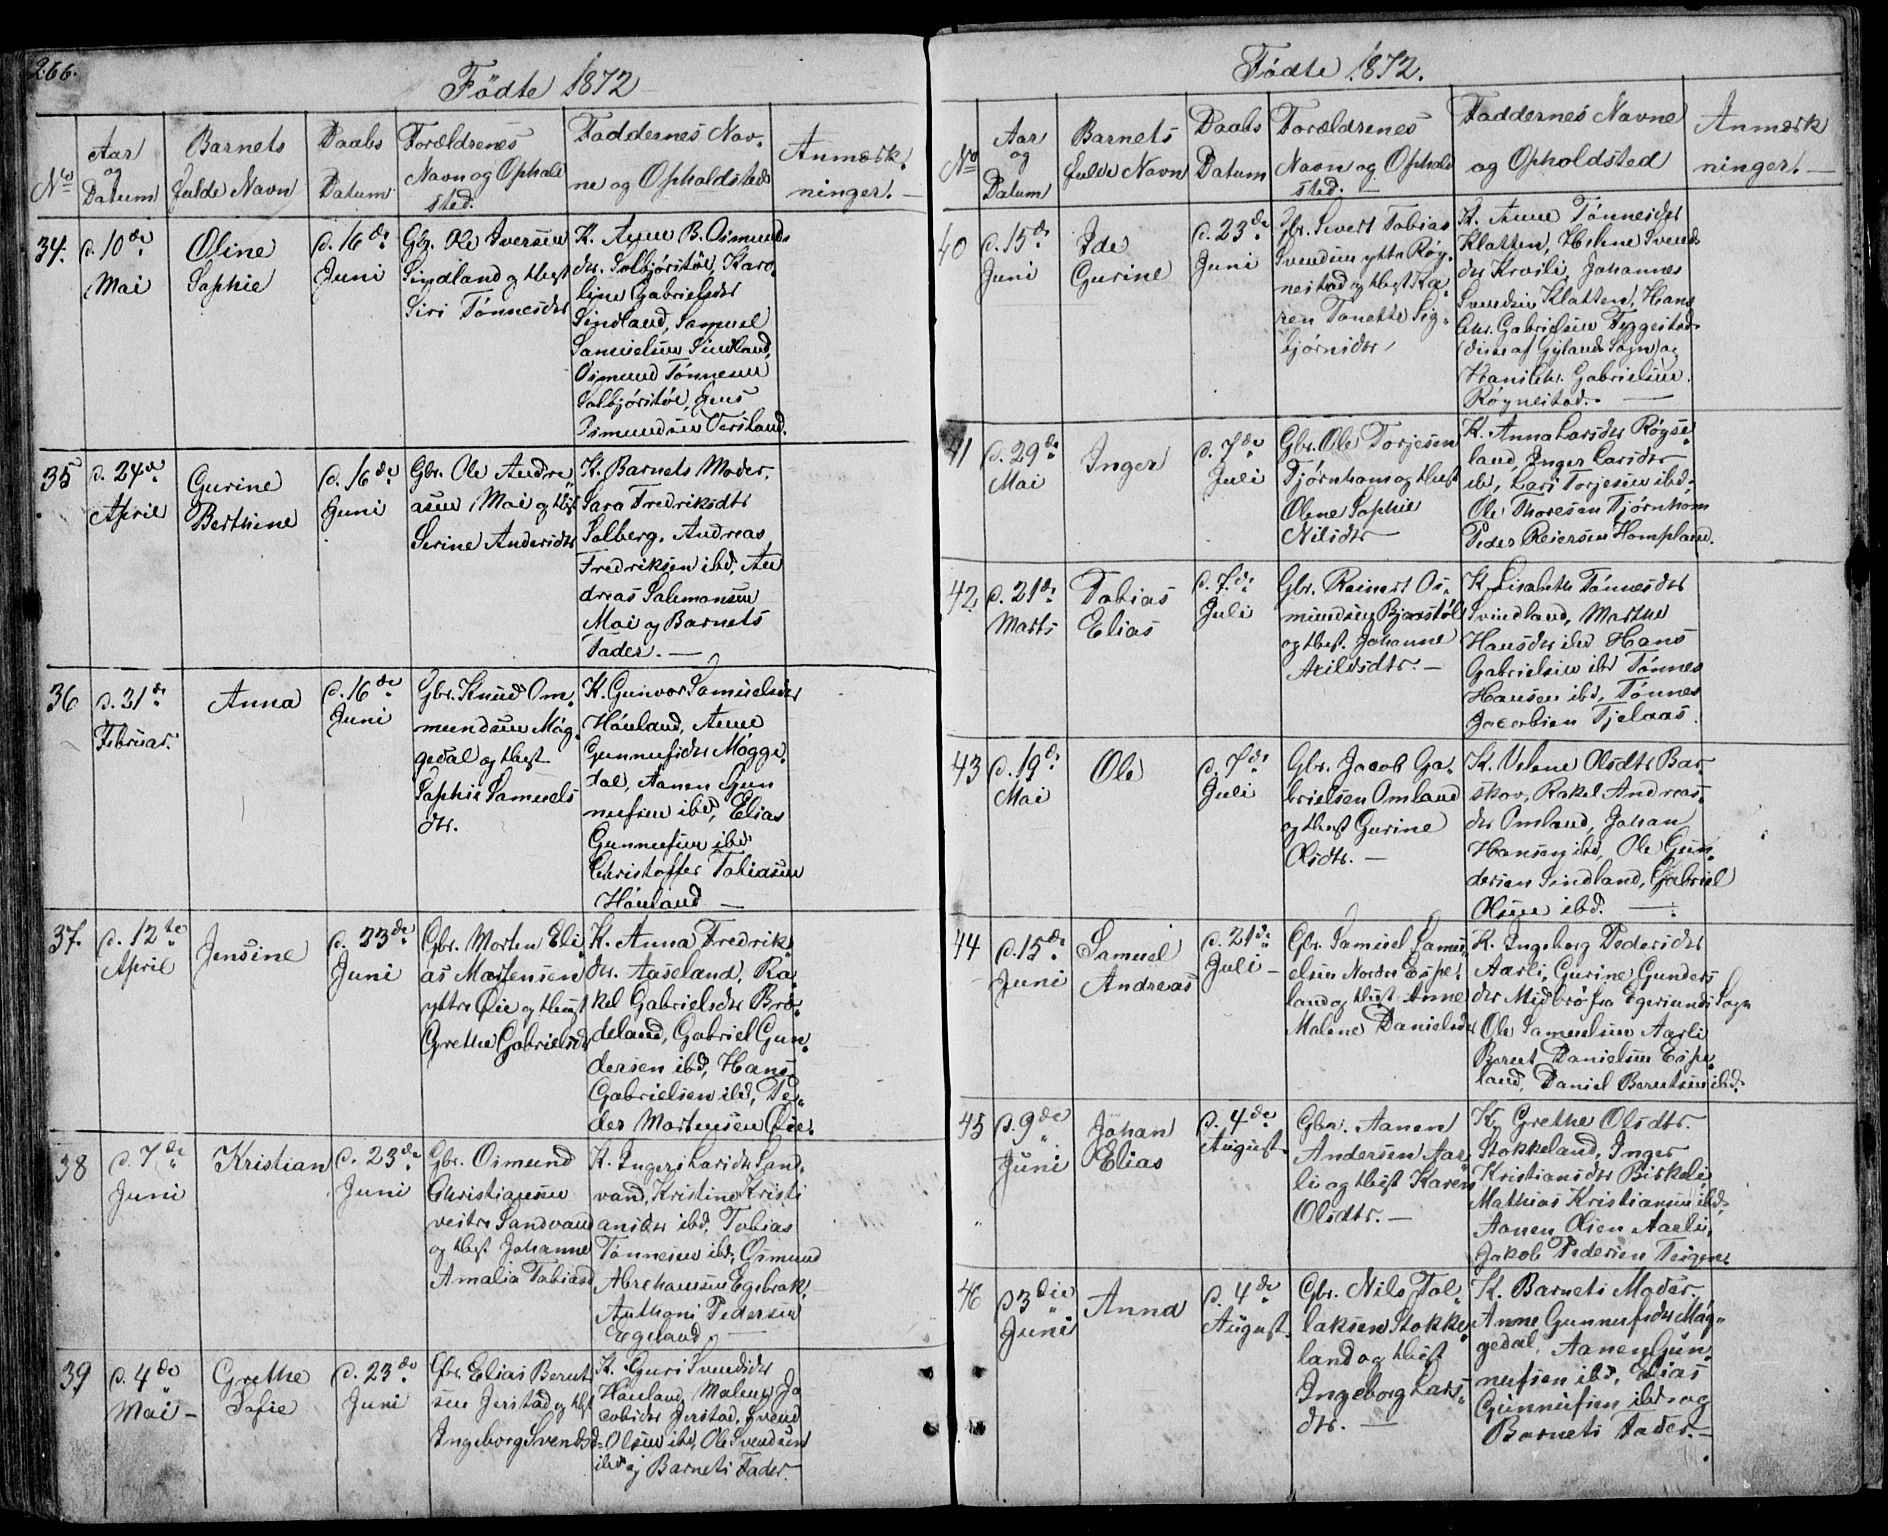 266.
Födte 1872
No
Aar og Datum
Barnets fulde Navn
Daabs Datum
Forældrenes Navn og Ophold sted.
Faddernes Navne og Opholdsted
Anmærkninger.
34.
d. 10de
Mai
Oline
Sophie
d. 16de
Juni
Gbr. Ole Iversen
Sindland og Hust
Siri Tönnesdtr
K. Anne B. Osmunds
dtr. Solbjörstöl, Karo
line Gabrielsdtr
Sindland, Samuel
Samuelsen Sindland,
Osmund Tönnesen
Solbjörstöl, Jens
Osmundsen Versland.
35
d. 24de
April
Gurine
Berthine
d. 16de
Juni
Gbr. Ole Andre
asen Moi og Hust
Serine Andersdtr
K. Barnets Moder.
Sara Fredriksdtr
Solberg, Andreas
Fredriksen ibd, An
dreas Salomonsen
Moi og Barnets
Fader. —
36
d. 21de
Februar.
Anna
d. 16de
Juni
Gbr. Knud Om
mundsen Mög
gedal og Hust
Sophie Samuels
dtr.
K. Gunvor Samuelsdtr
Höuland, Anne
Gunnufsdtr Mögge
dal, Aanen Gun
nufsen ibd, Elias
Gunnufsen ibd
Christoffer Tobiasen
Höuland —
37.
d. 12te
April
Jensine
d. 23de
Juni
Gbr. Morten Eli
as Martensen
yttre Öie og Hust
Grethe Gabrielsdtr
K. Anna Fredriks
dtr. Aaseland, Ra
kel Gabrielsdtr Brö
deland, Gabriel Gun
dersen ibd, Hans
Gabrielsen ibd, Pe
der Mortensen Öie.
38
d. 7de
Juni
Kristian
d. 23de
Juni
Gbr. Osmund
Christiansen
vestre Sandvand
og Hust Johanne
Amalia Tobiasd
K. Inger Larsdtr Sand
vand, Kristine Kristi
ansdtr ibd, Tobias
Tönnesen ibd, Osmund
Abrahamsen Egebrok,
Anthoni Pedersen
Egeland, —
39
d. 4de
Mai —
Grethe
Sofie
d. 23de
Juni
Gbr. Elias Bernt
sen Jerstad og Hust
Ingeborg Svendsd
K. Guri Svendsdtr
Höuland, Malene Ja
cobsdtr Jerstad, Svend
Olsen ibd, Ole Svendsen
ibd og Barnets Fader.
Födte 1872.
No
Aar og Datum
Barnets fulde Navn
Daabs Datum
Forældrenes Navn og Ophold sted. —
Faddernes Navne og Opholdsted
Anmærkninger. —
40
d. 15de
Juni
Ide
Gurine
d. 23de
Juni
Gbr. Sivert Tobias
Svendsen yttre Røg
nestad og Hust Ka
ren Tonette Sig
bjørnsdtr
K. Anne Tönnesdtr
Klatten, Helene Svends
dtr Krosli, Johannes
Svendsen Klatten, Hans
Chr. Gabrielsen Tyggestad
(disse af Gylands Sogn) og
Hans Chr. Gabrielsen
Røgnestad. —
41
d. 29de
Mai
Inger
d. 7de
Juli
Gbr. Ole Torjesen
Tjörnhom og Hust
Olene Sophie
Nilsdtr —
K. Anna Larsdtr Rögse
land, Inger Larsdtr
ibd, Lars Torjesen ibd,
Ole Thoresen Tjörnhom
Peder Reiersen Hompland.
42
d. 21de
Marts
Tobias
Elias
d. 7de
Juli
Gbr. Reinert Os
mundsen Bjorstöl
og Hust. Johanne
Axildsdtr. —
K. Lisabeth Tönnesdtr
Svindland, Marthe
Hansdtr ibd Hans
Gabrielsen ibd Tönnes
Hansen ibd, Tönnes
Jacobsen Tjelaas.
43
d. 19de
Mai
Ole
d. 7de
Juli
Gbr. Jacob Ga
brielsen Omland
og Hust Gurine
Olsdtr. —
K. Velene Olsdtr Bar
skov, Rakel Andreas
dtr Omland, Johan
Hansen ibd, Ole Gun
dersen Sindland, Gabriel
Olsen ibd. —
44
d. 15de
Juni
Samuel
Andreas
d. 21de
Juli —
Gbr. Samuel Samu
elsen Nordre Espe
land og Hust Anne
Malene Danielsdtr
K. Ingeborg Pedersdtr
Aarli, Gurine Gunders
dtr Midbrö fra Egersunds Sogn
Ole Samuelsen Aarli
Bernt Danielsen Espe
land, Daniel Berntsen ibd.
45
d. 9de
Juni
Johan
Elias
d. 4de
August
Gbr. Aanen
Andersen Aar
li og Hust Karen
Olsdtr. —
K. Grethe Olsdtr.
Stokkeland, Inger
Kristiansdtr Birkeli
Mathias Kristiansen ibd,
Aanen Olsen Aarli,
Jakob Pedersen
46
d. 3die
Juni
Anna
d. 4de
August
Gbr. Nils Tol
laksen Stokke
land og Hust
Ingeborg Lars
dtr. —
K. Barnets Moder.
Anne Gunnufsdtr Mög
gedal, Aanen Gun
nufsen ibd, Elias
Gunnufsen ibd og
Barnets Fader. —